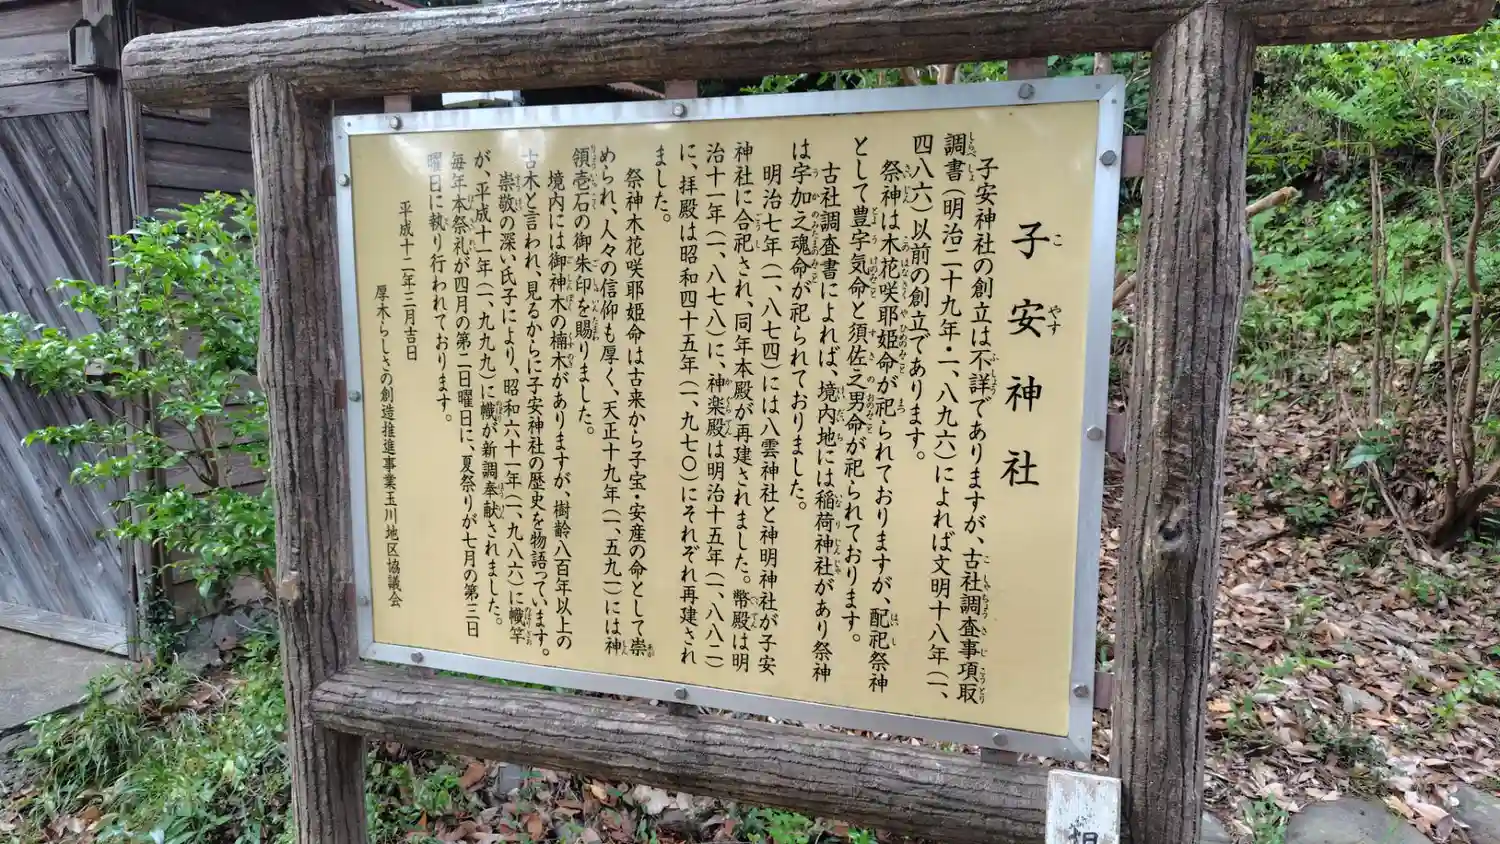 子安神社
子安神社の創立は不詳でありますが、古社調査事項取
調書(明治二十九年・一、八九六)によれば文明十八年(一、
四八六)以前の創立であります。
祭神は木花咲耶姫命が祀られておりますが、配祀祭神
として豊宇気命と須佐之男命が祀られております。
古社調査書によれば、境内地には稲荷神社があり祭神
は宇加之魂命が祀られておりました。
明治七年(一、八七四)には八雲神社と神明神社が子安
神社に合祀され、同年本殿が再建されました。幣殿は明
治十一年(一、八七八)に、神楽殿は明治十五年(一、八八二)
に、拝殿は昭和四十五年(一、九七〇)にそれぞれ再建され
ました。
祭神木花咲耶姫命は古来から子宝・安産の命として崇
められ、人々の信仰も厚く、天正十九年(一、五九一)には神
領壱石の御朱印を賜りました。
境内には御神木の楠木がありますが、樹齢八百年以上の
古木と言われ、見るからに子安神社の歴史を物語っています。
崇敬の深い氏子により、昭和六十一年(一、九八六)に幟竿
が、平成十一年(一、九九九)に幟が新調奉献されました。
毎年本祭礼が四月の第二日曜日に、夏祭りが七月の第三日
曜日に執り行われております。
平成十二年三月吉日
厚木らしさの創造推進事業玉川地区協議会